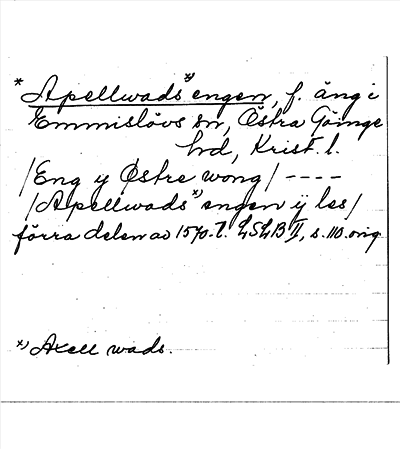 * Apellwads *) engen, f. äng i
Emmislövs sn, Östra Göinge
hd, Krist. l.
/Eng y Østre wong/ ----
/Apellwads *) engen ÿ les/
förra delen av 1570-t. LSLB II, s. 110. orig
*) Axell wads.